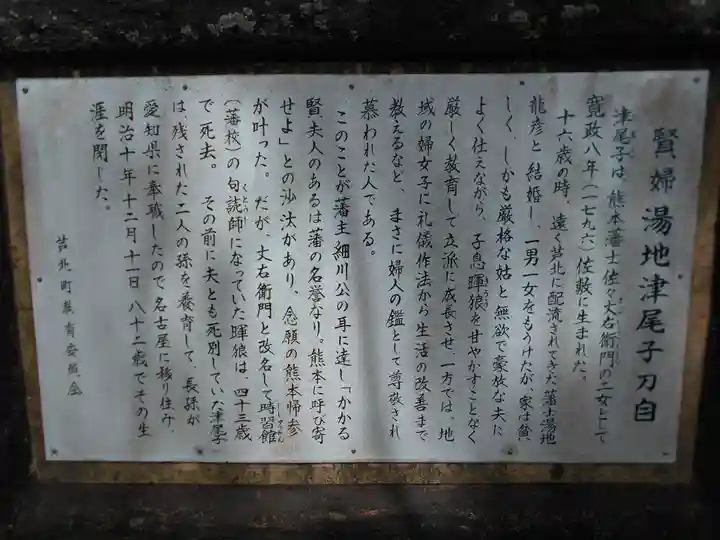 賢婦 湯地津尾子刀自
津尾子は、熊本藩士佐々丈右衛門の二女として
寛政八年(一七九六)佐敷に生まれた。
十六歳の時、遠く芦北に配流されてきた藩士湯地
龍彦と結婚し、一男一女をもうけたが、家は貧
しく、しかも厳格な姑と無欲で豪放な夫に
よく仕えながら、子息暉狼を甘やかすことなく
厳しく教育して立派に成長させ、一方では、地
域の婦女子に礼儀作法から生活の改善まで
教えるなど、まさに婦人の鑑として尊敬され
慕われた人である。
このことが藩主細川公の耳に達し「かかる
賢夫人のあるは藩の名誉なり。熊本に呼び寄
せよ」との沙汰があり、念願の熊本帰参
が叶った。だが、丈右衛門と改名して時習館
(藩校)の句読師になっていた暉狼は、四十三歳
で死去。その前に夫とも死別していた津尾子
は、残された二人の孫を養育して、長孫が
愛知県に奉職したので名古屋に移り住み、
明治十年十二月十一日 八十二歳でその生
涯を閉じた。
芦北町教育委員会